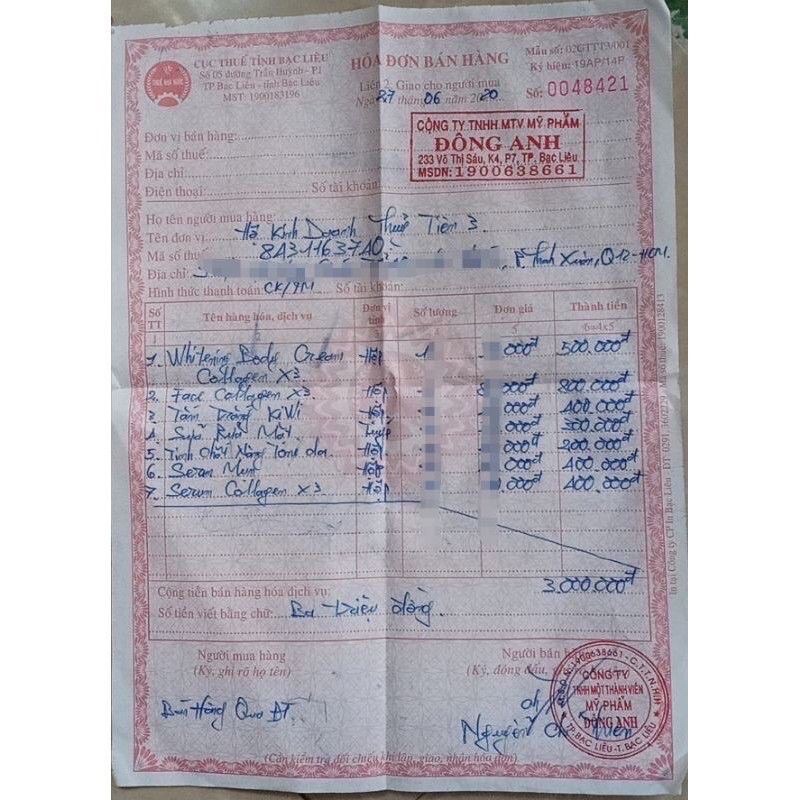 CỤC THUẾ TỈNH BẠC LIÊU
Số 05 đường Trần Huỳnh - P1
TP Bạc Liêu - tỉnh Bạc Liêu
MST: 1900183196
THUẾ NHÀ NƯỚC
HÓA ĐƠN BÁN HÀNG
Liên 2: Giao cho người mua
Ngày 27 tháng 06 năm 2020
Mẫu số: 02GTTT3/001
Ký hiệu: 19AP/14P
Số: 0048421
Đơn vị bán hàng:
Mã số thuế:
Địa chỉ:
Điện thoại: Số tài khoản:
CÔNG TY TNHH MTV MỸ PHẨM
ĐÔNG ANH
233 Võ Thị Sáu, K4, P7, TP. Bạc Liêu
MSDN: 1900638661
Họ tên người mua hàng:
Tên đơn vị Hộ Kinh Doanh Thuỷ Tiên 3
Mã số thuế 8431163740
Địa chỉ P. Thạnh Xuân, Q12-HCM.
Hình thức thanh toán CK/TM Số tài khoản:
Số TT Tên hàng hóa, dịch vụ Đơn vị tính Số lượng Đơn giá Thành tiền
1 4 5 6=4x5
1. Whitening Body Cream Hộp 1 000đ 500.000đ
Collagen X3
2. Face Collagen X3 Hộp 000đ 800.000đ
3. Tắm Trắng KiWi Hộp 000đ 400.000đ
4. Sữa Rửa Mặt Tuýp 000đ 300.000đ
5. Tinh Chất Nâng Tone da Hộp 000đ 200.000đ
6. Serum Mụn Hộp 000đ 400.000đ
7. Serum Collagen X3 Hộp 000đ 400.000đ
Cộng tiền bán hàng hóa dịch vụ: 3.000.000đ
Số tiền viết bằng chữ: Ba triệu đồng.
Người mua hàng
(Ký, ghi rõ họ tên)
Bán Hàng Qua ĐT
Người bán
(Ký, đóng dấu,
Nguyễn
1900638661 - C.T.T.N.H.H
CÔNG TY
TNHH MỘT THÀNH VIÊN
MỸ PHẨM
ĐÔNG ANH
TP. BẠC LIÊU - T. BẠC LIÊU
(Cần kiểm tra đối chiếu khi lập, giao, nhận hóa đơn)
In tại Công ty CP In Bạc Liêu - ĐT: 0291.3602729 - Mã số thuế: 1900128413